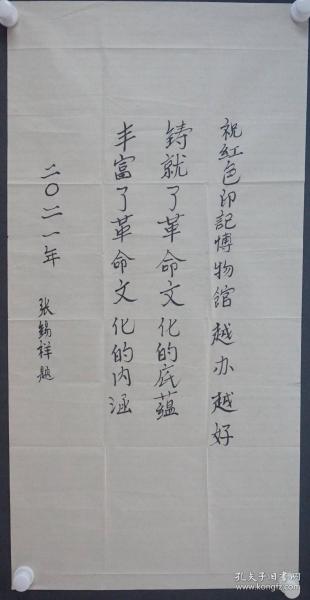 祝紅色印記博物馆越办越好
鋳就了革命文化的底蕴
丰富了革命文化的内涵
二〇二一年 张錫祥题
孔夫子旧书网
kongfz.com